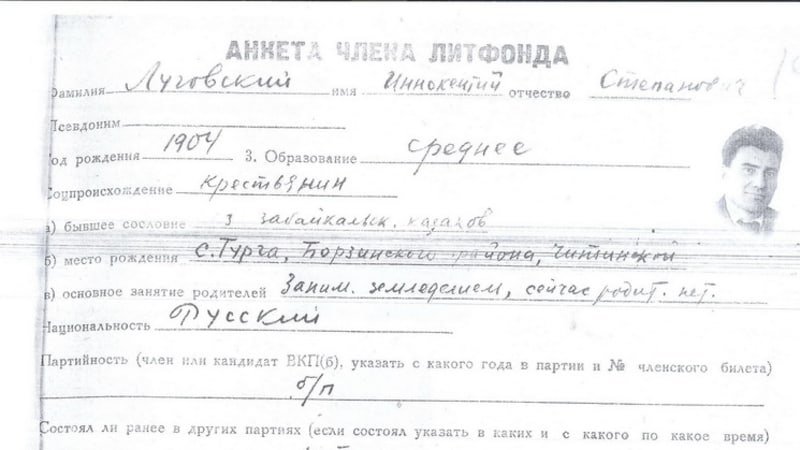 АНКЕТА ЧЛЕНА ЛИТФОНДА
Фамилия Луговский имя Иннокентий отчество Степанович
Псевдоним
од рождения 1904 3. Образование среднее
Соцпроисхождение крестьянин
а) бывшее сословие з забайкальк. казаков
б) место рождения с. Турга, Борзинского района, Читинской
в) основное занятие родителей Заним. земледелием, сейчас родит. нет.
Национальность Русский
Партийность (член или кандидат ВКП(б), указать с какого года в партии и № членского билета)
б/п
Состоял ли ранее в других партиях (если состоял указать в каких и с какого по какое время)